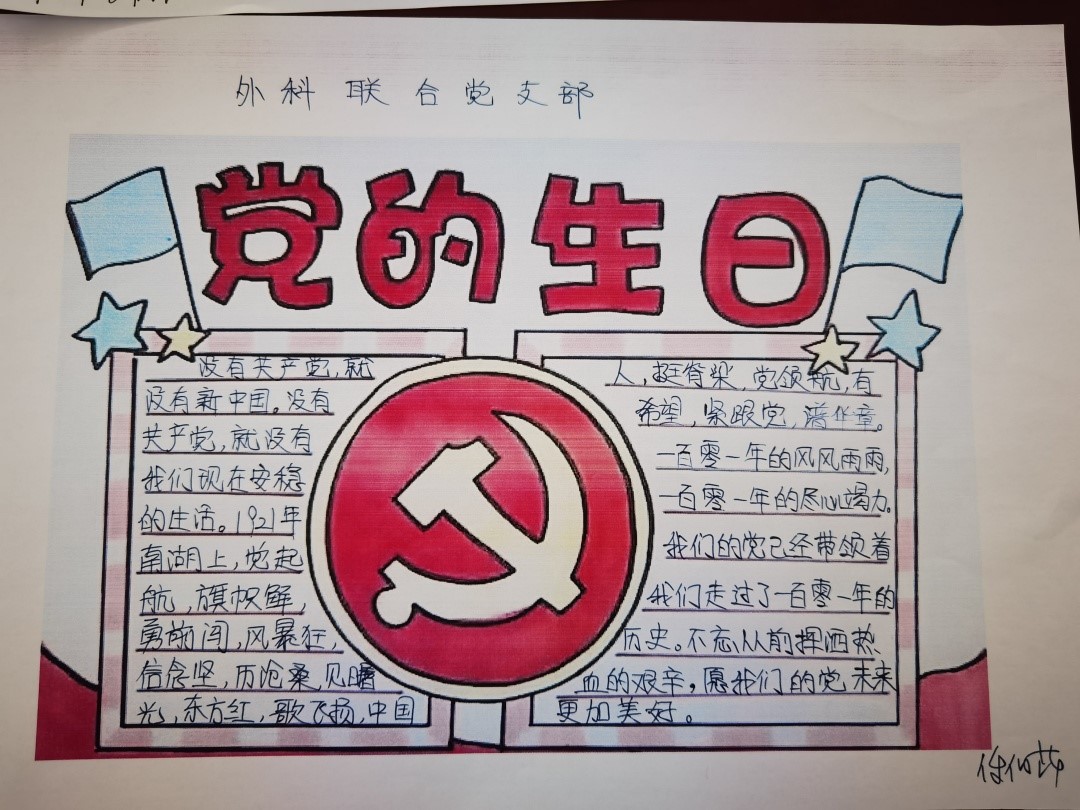 外科联合党支部
党的生日
没有共产党,就
没有新中国。没有
共产党,就没有
我们现在安稳
的生活。1921年
南湖上,党起
航,旗帜鲜,
勇前闯,风暴狂,
信念坚,历沧桑,见曙
光,东方红,歌飞扬,中国
人,挺脊梁,党领航,有
希望,紧跟党,谱华章。
一百零一年的风风雨雨,
一百零一年的尽心竭力。
我们的党已经带领着
我们走过了一百零一年的
历史。不忘从前挥洒热
血的艰辛,愿我们的党未来
更加美好。